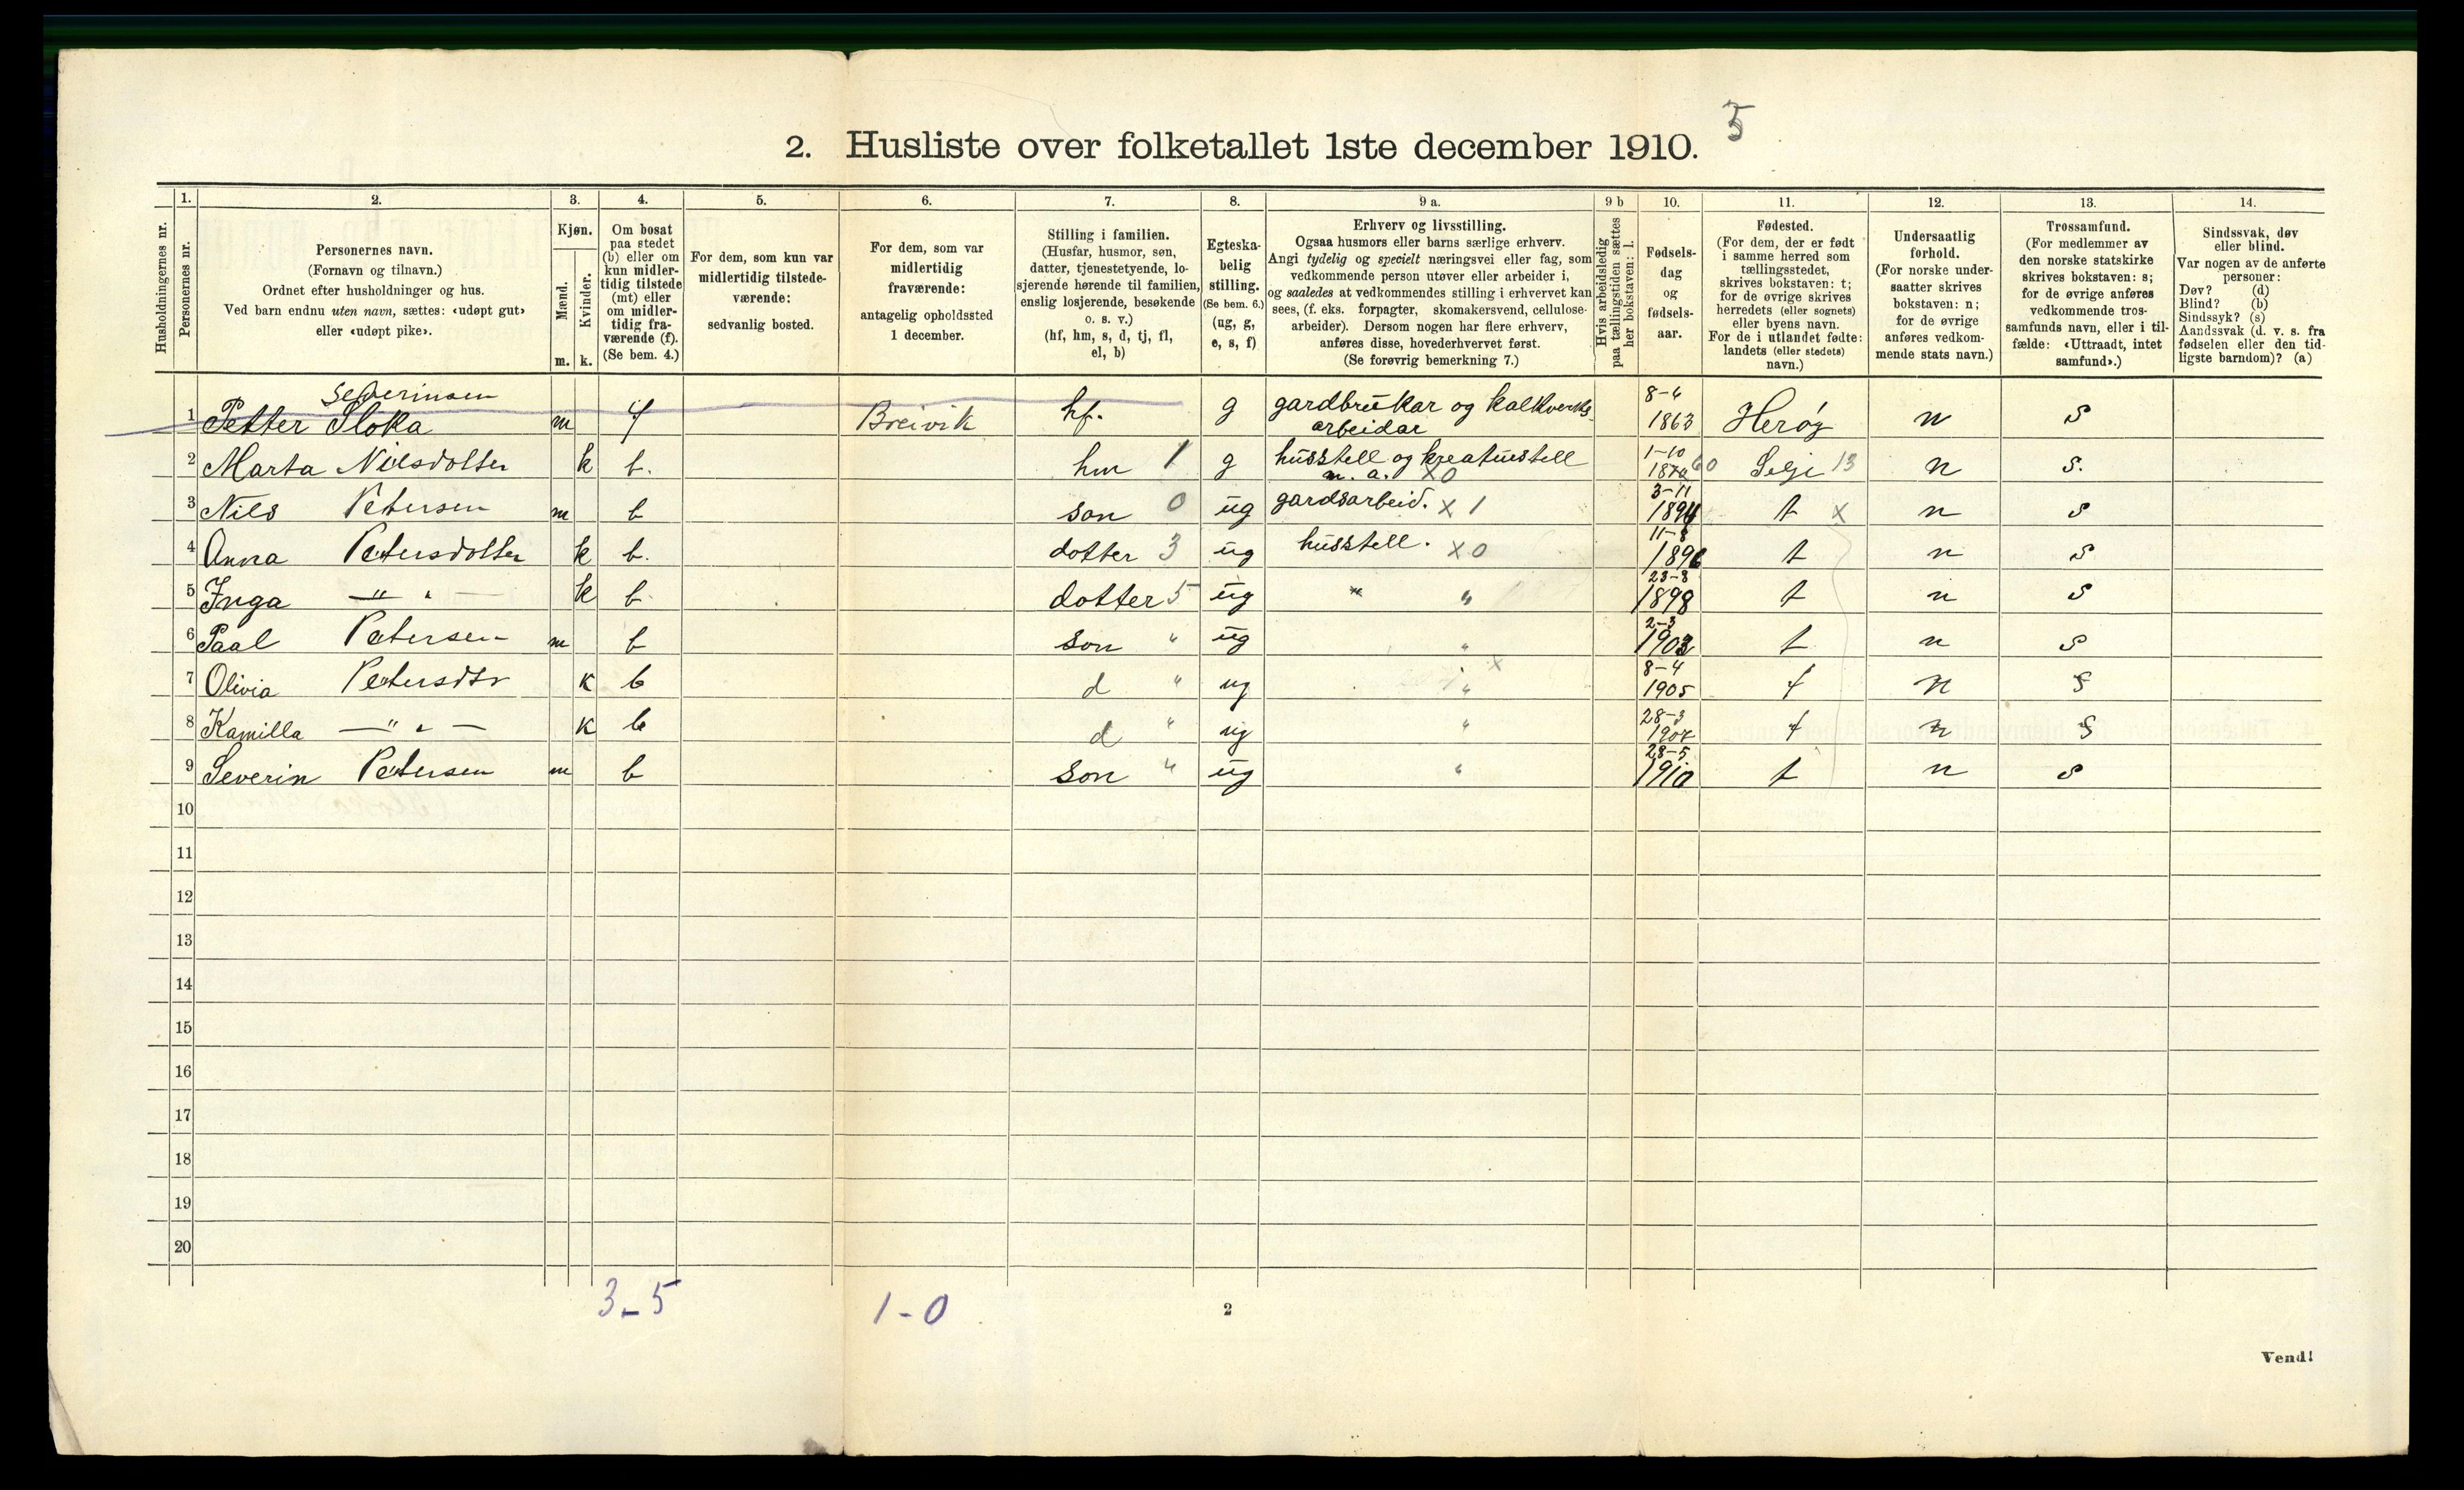 2. Husliste over folketallet 1ste december 1910. 5
Husholdningernes nr.
1. Personernes nr.
2. Personernes navn.
(Fornavn og tilnavn.)
Ordnet efter husholdninger og hus.
Ved barn endnu uten navn, sættes: «udøpt gut»
eller «udøpt pike».
3. Kjøn.
Mænd. m.
Kvinder. k.
4. Om bosat
paa stedet
(b) eller om
kun midler-
tidig tilstede
(mt) eller
om midler-
tidig fra-
værende (f).
(Se bem. 4.)
5. For dem, som kun var
midlertidig tilstede-
værende:
sedvanlig bosted.
6. For dem, som var
midlertidig
fraværende:
antagelig opholdssted
1 december.
7. Stilling i familien.
(Husfar, husmor, søn,
datter, tjenestetyende, lo-
sjerende hørende til familien,
enslig losjerende, besøkende
o. s. v.)
(hf, hm, s, d, tj, fl,
el, b)
8. Egteska-
belig
stilling.
(Se bem. 6.)
(ug, g,
e, s, f)
9 a. Erhverv og livsstilling.
Ogsaa husmors eller barns særlige erhverv.
Angi tydelig og specielt næringsvei eller fag, som
vedkommende person utøver eller arbeider i,
og saaledes at vedkommendes stilling i erhvervet kan
sees, (f. eks. forpagter, skomakersvend, cellulose-
arbeider). Dersom nogen har flere erhverv,
anføres disse, hovederhvervet først.
(Se forøvrig bemerkning 7.)
9 b Hvis arbeidsledig
paa tællingstiden sættes
her bokstaven: l.
10. Fødsels-
dag
og
fødsels-
aar.
11. Fødested.
(For dem, der er født
i samme herred som
tællingsstedet,
skrives bokstaven: t;
for de øvrige skrives
herredets (eller sognets)
eller byens navn.
For de i utlandet fødte:
landets (eller stedets)
navn.)
12. Undersaatlig
forhold.
(For norske under-
saatter skrives
bokstaven: n;
for de øvrige
anføres vedkom-
mende stats navn.)
13. Trossamfund.
(For medlemmer av
den norske statskirke
skrives bokstaven: s;
for de øvrige anføres
vedkommende tros-
samfunds navn, eller i til-
fælde: «Uttraadt, intet
samfund».)
14. Sindssvak, døv
eller blind.
Var nogen av de anførte
personer:
Døv? (d)
Blind? (b)
Sindssyk? (s)
Aandssvak (d. v. s. fra
fødselen eller den tid-
ligste barndom)? (a)
Severinsen 8-4
1 Petter Sloka m f Breivik hf. g gardbrukar og kalkverks arbeidar 1863 Herøy n s
2 Marta Nilsdotter k b. hm 1 g husstell og kreaturstell m. a. x0 1-10 60 Selje 13 n s.
3 Nils Petersen m b son 0 ug gardsarbeid. x 1 3-11 1894 t x n s
4 Anna Petersdotter k b. dotter 3 ug husstell. x 0 11-8 1896 t n s
5 Inga — " — k b. dotter 5 ug " " 23-8 1898 t n s
6 Paal Petersen m b son " ug " 2-3 1903 t n s
7 Olivia Petersdtr k b d " ug " x 8-4 1905 t n s
8 Kamilla — " — k b d " ug " 28-3 1907 t n s
9 Severin Petersen m b son " ug " 28-5 1910 t n s
10
11
12
13
14
15
16
17
18
19
20
3-5 1-0 2
Vend!